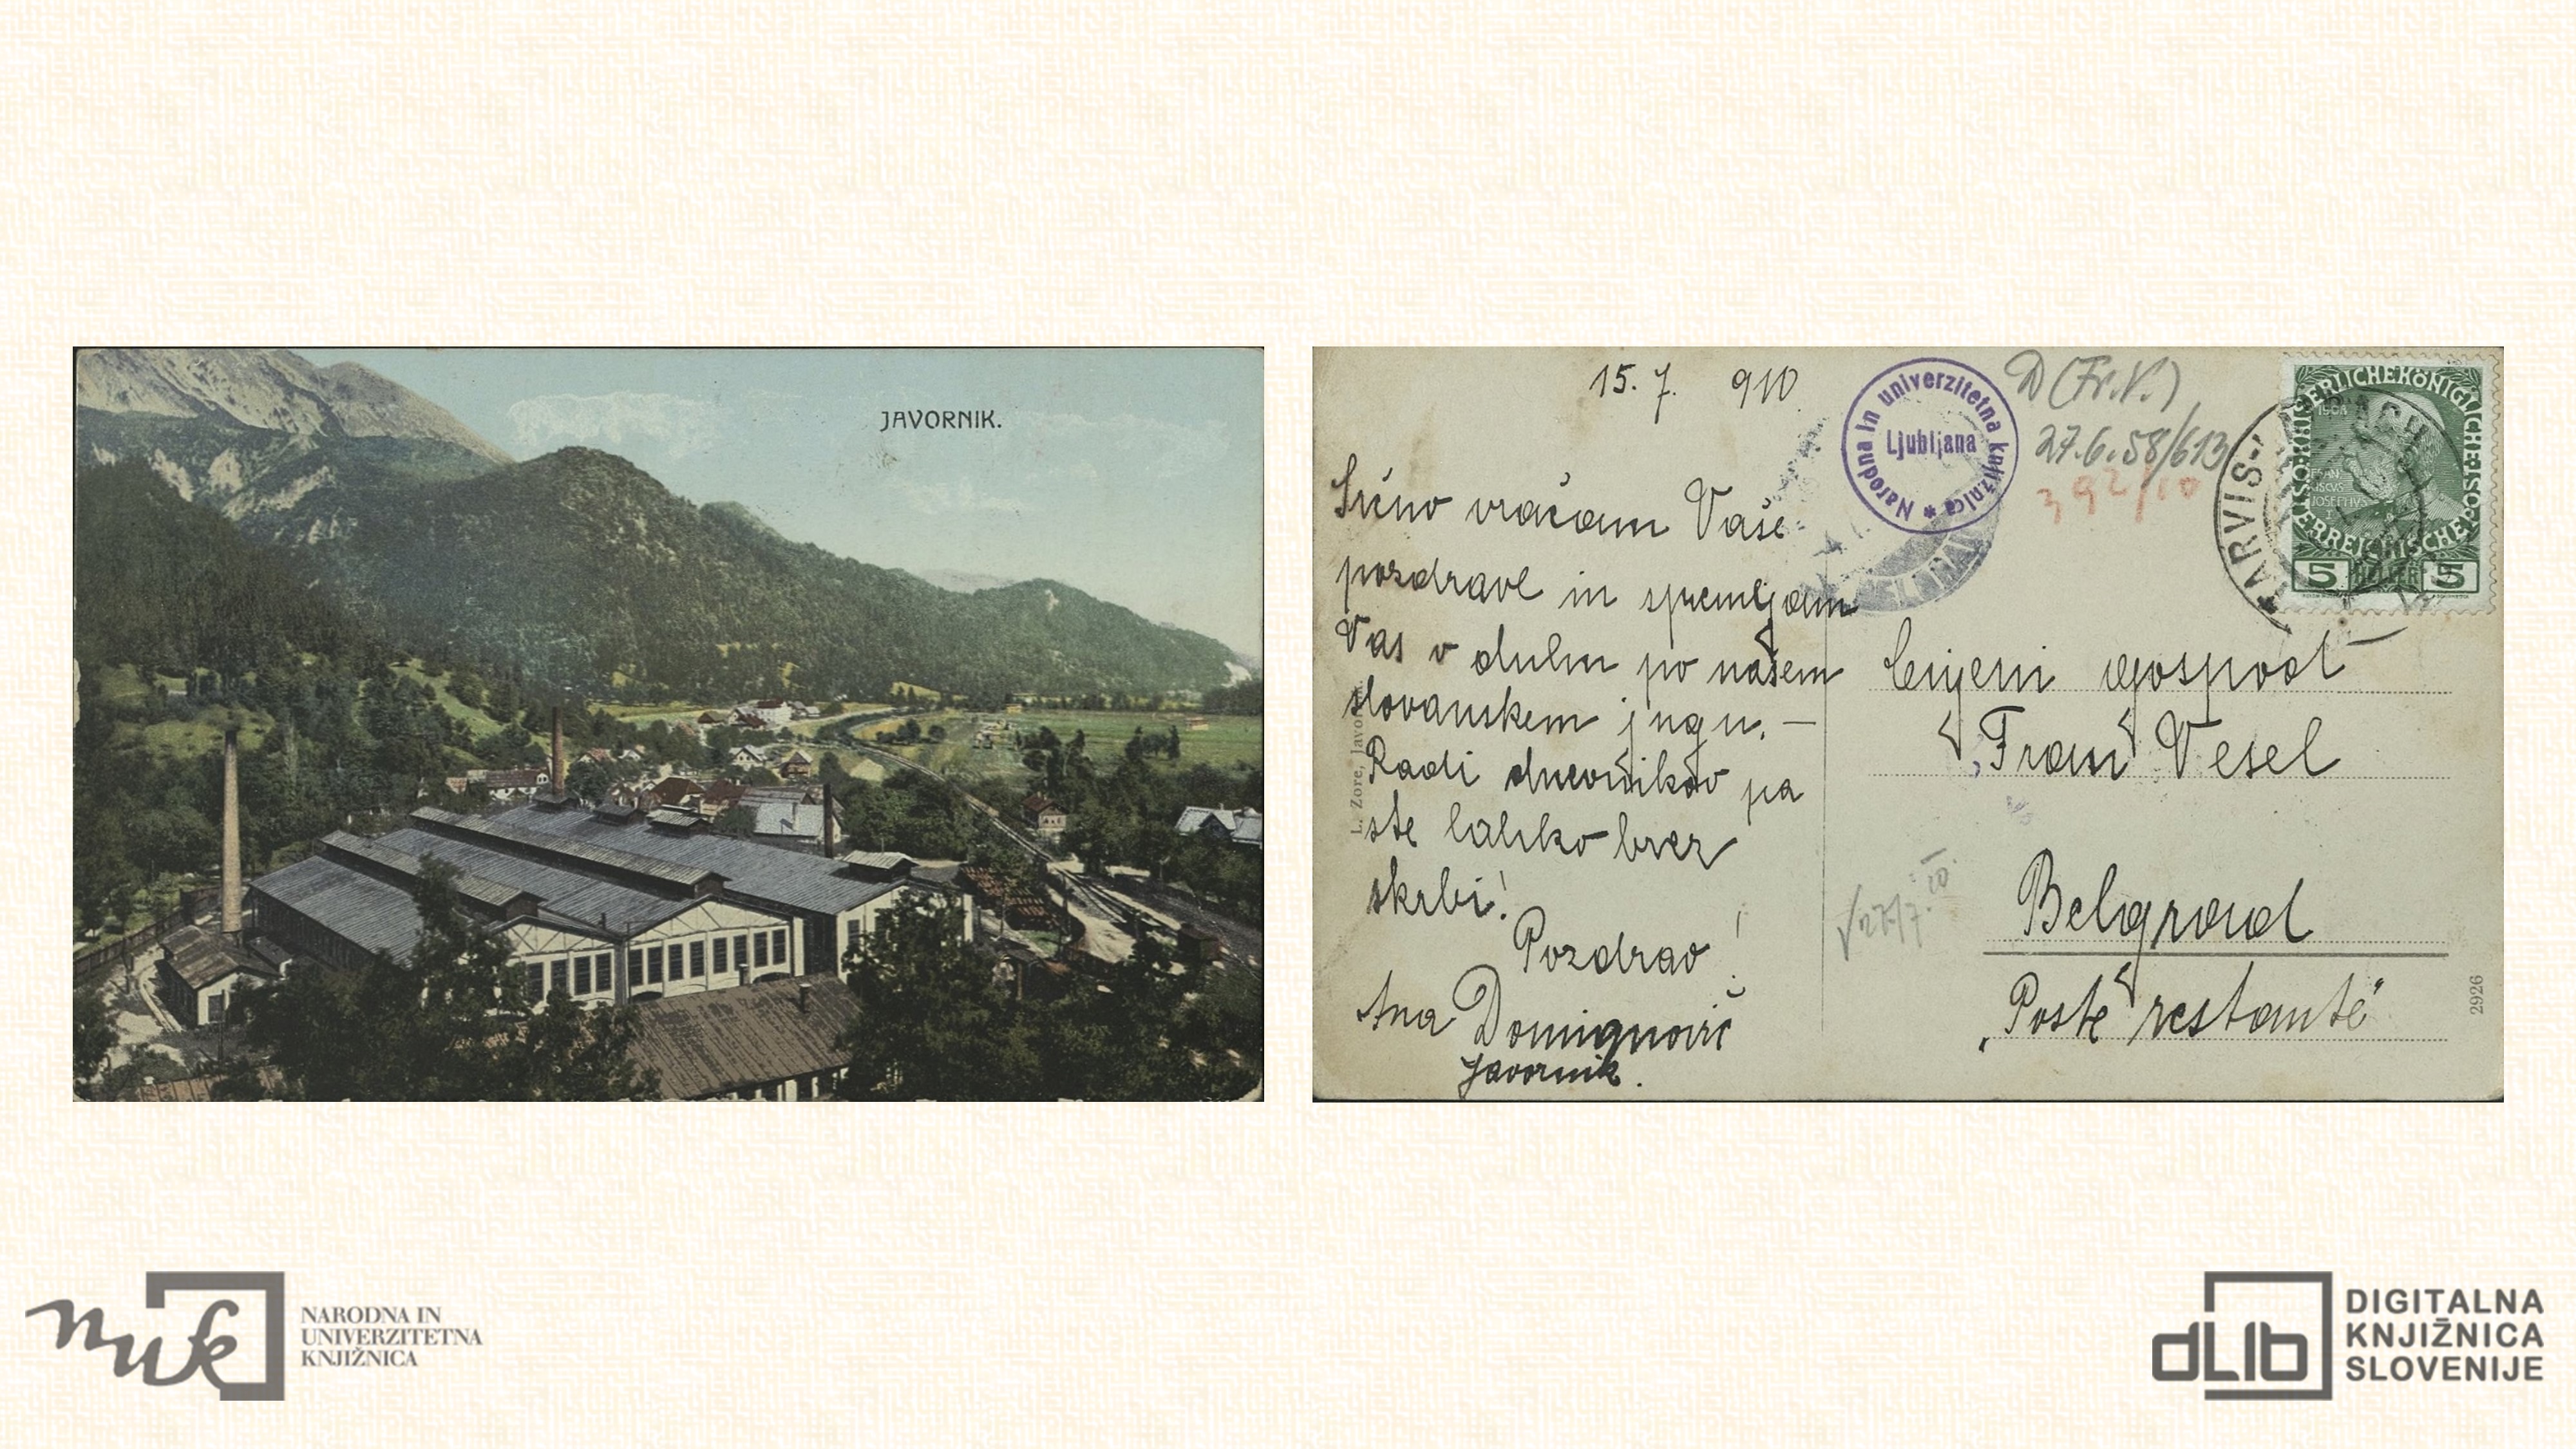 JAVORNIK.
15. 7. 910.
Narodna in univerzitetna knjižnica
Ljubljana
D (Fr. V.)
27.6.58/613
392/10
1908
5 HELLER 5
TARVIS-
Srčno vračam Vaše
pozdrave in spremljam
Vas v duhu po našem
slovanskem jugu. —
Radi dnevnikov pa
ste lahko brez
skrbi!
Pozdrav!
Ana Domignovič
Javornik.
L. Zore,
Cenjeni gospod
Fran Vesel
Belgrad
„Poste restante"
27/7. 10.
2926
nuk
NARODNA IN
UNIVERZITETNA
KNJIŽNICA
dLib
DIGITALNA
KNJIŽNICA
SLOVENIJE